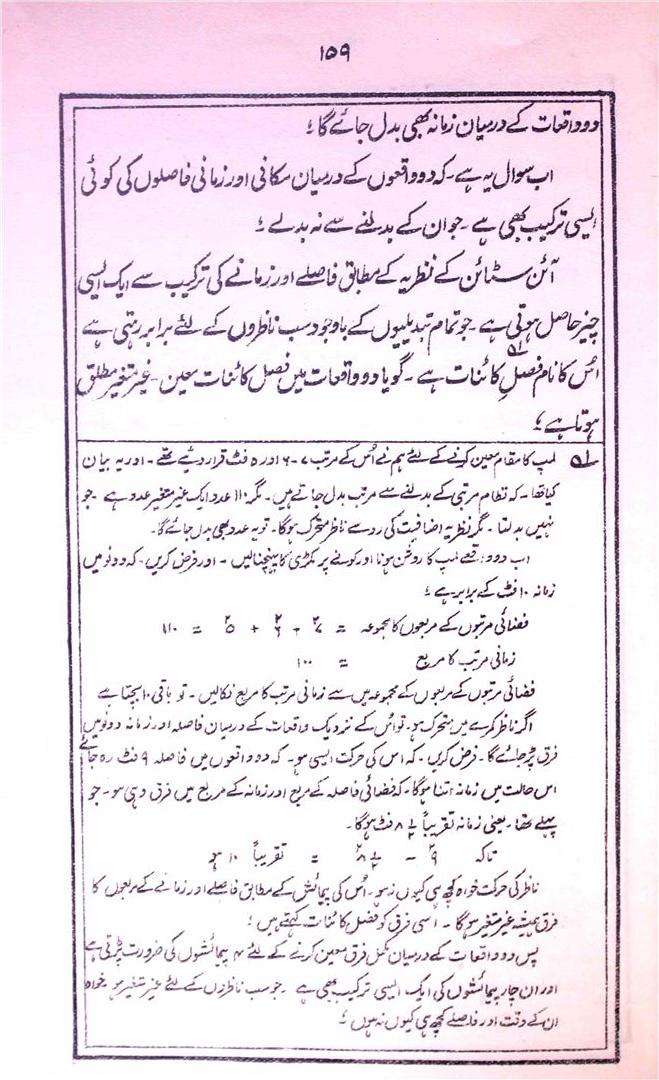 ۱۵۹
دو واقعات کے درمیان زمانہ بھی بدل جائے گا؛
اب سوال یہ ہے۔ کہ دو واقعوں کے درمیان مکانی اور زمانی فاصلوں کی کوئی
ایسی ترکیب بھی ہے۔ جو ان کے بدلنے سے نہ بدلے؛
آئن سٹائن کے نظریہ کے مطابق فاصلے اور زمانے کی ترکیب سے ایک ایسی
چیز حاصل ہوتی ہے۔ جو تمام تبدیلیوں کے باوجود سب ناظروں کے لئے برابر رہتی ہے
اُس کا نام فصلِ کائنات ہے۔ گویا دو واقعات میں فصل کائنات معین۔ غیر متغیر مطلق
ہوتا ہے؛
لمپ کا مقام معین کرنے کے لئے ہم نے اُس کے مرتب ۷۔۶ اور ۵ فٹ قرار دیئے تھے۔ اور یہ بیان
کیا تھا۔ کہ نظام مرتبی کے بدلنے سے مرتب بدل جاتے ہیں۔ مگر ۱۱۰ عدد ایک غیر متغیر عدد ہے۔ جو
نہیں بدلتا۔ مگر نظریہ اضافیت کی رو سے ناظر متحرک ہوگا۔ تو یہ عدد بھی بدل جائے گا۔
اب دو واقعے لمپ کا روشن ہونا اور کونے پر مکڑی کا پہنچنا لیں۔ اور فرض کریں۔ کہ دونو میں
زمانہ ۱۰ فٹ کے برابر ہے؛
فضائی مرتبوں کے مربعوں کا مجموعہ = ۷² + ۶² + ۵² = ۱۱۰
زمانی مرتب کا مربع = ۱۰۰
فضائی مرتبوں کے مربعوں کے مجموعہ میں سے زمانی مرتب کا مربع نکالیں۔ تو باقی ۱۰ بچتا ہے
اگر ناظر کمرے میں متحرک ہو۔ تو اُس کے نزدیک واقعات کے درمیان فاصلہ اور زمانہ دونو میں
فرق پڑ جائے گا۔ فرض کریں۔ کہ اس کی حرکت ایسی ہو۔ کہ دو واقعوں میں فاصلہ ۹ فٹ رہ جائے
اس حالت میں زمانہ اتنا ہوگا۔ کہ فضائی فاصلہ کے مربع اور زمانہ کے مربع میں فرق وہی ہو۔ جو
پہلے تھا۔ یعنی زمانہ تقریباً ۸ فٹ ہوگا۔
تاکہ ۹² - ۸² = تقریباً ۱۰ ہو
ناظر کی حرکت خواہ کچھ ہی کیوں نہ ہو۔ اُس کی پیمائش کے مطابق فاصلے اور زمانے کے مربعوں کا
فرق ہمیشہ غیر متغیر ہوگا۔ اسی فرق کو فصل کائنات کہتے ہیں؛
پس دو واقعات کے درمیان مکمل فرق معین کرنے کے لئے ۴ پیمائشوں کی ضرورت پڑتی ہے
اور ان چار پیمائشوں کی ایک ایسی ترکیب بھی ہے۔ جو سب ناظروں کے لئے غیر متغیر ہو۔ خواہ
ان کے وقت اور فاصلے کچھ ہی کیوں نہ ہوں؛